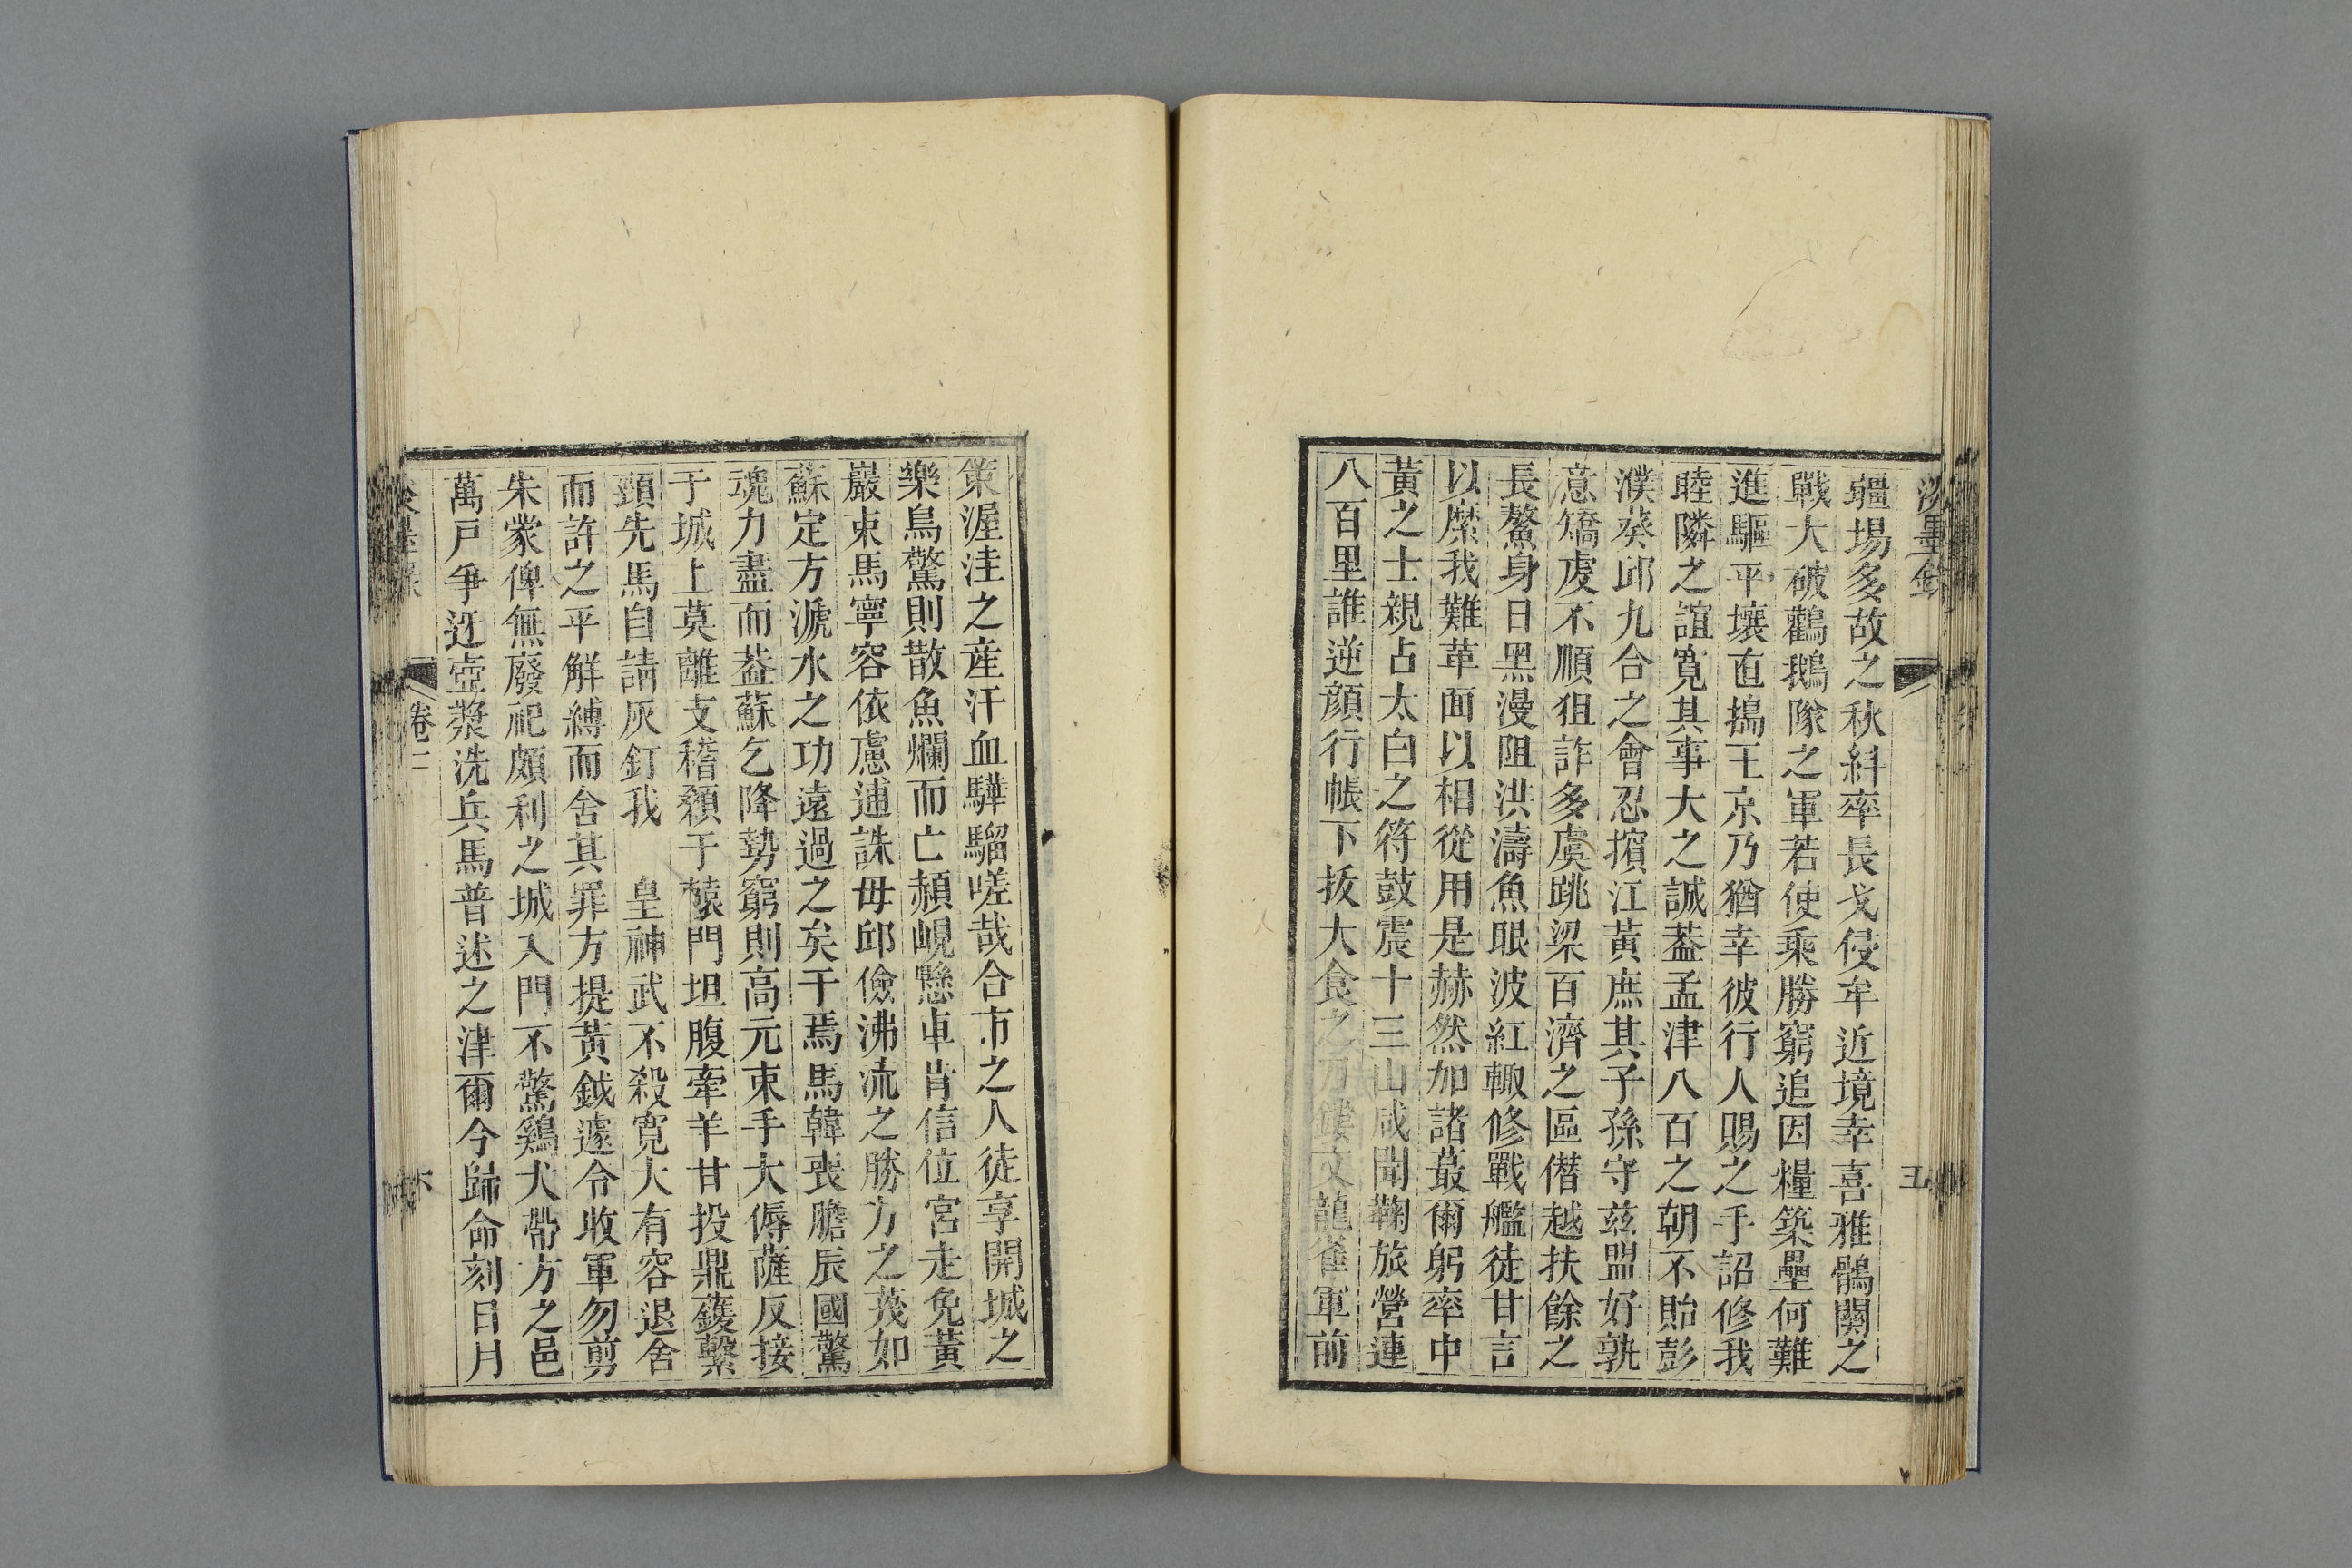 疆場多故之秋糾率長戈侵牟近境幸喜雅鶻關之
戰大破鸛鵝隊之軍若使乘勝窮追因糧築壘何難
進驅平壤直搗王京乃猶幸彼行人賜之手詔修我
睦隣之誼寬其事大之誠葢孟津八百之朝不貽彭
濮葵邱九合之會忍擯江黃庶其子孫守兹盟好孰
意矯虔不順狙詐多虞跳梁百濟之區僭越扶餘之
長鰲身日黑漫阻洪濤魚眼波紅輙修戰艦徒甘言
以縻我難革面以相從用是赫然加諸蕞爾躬率中
黃之士親占太白之符鼓震十三山咸聞鞠旅營連
八百里誰逆顔行帳下拔大食之刀鏤文龍雀軍前
五
策渥洼之産汗血驊騮嗟哉合市之人徒享開城之
樂鳥驚則散魚爛而亡赬峴懸車肯信位宮走免黃
巖束馬寧容依慮逋誅毋邱儉沸流之勝方之蔑如
蘇定方㴲水之功遠過之矣于焉馬韓喪膽辰國驚
魂力盡而葢蘇乞降勢窮則高元束手大傉薩反接
于城上莫離支稽顙于轅門坦腹牽羊甘投鼎鑊繫
頸先馬自請灰釘我 皇神武不殺寬大有容退舍
而許之平解縛而舍其罪方提黃鉞遽令收軍勿剪
朱蒙俾無廢祀頗利之城入門不驚鷄犬帶方之邑
萬戸爭迓壺漿洗兵馬普述之津爾今歸命刻日月
卷二
六